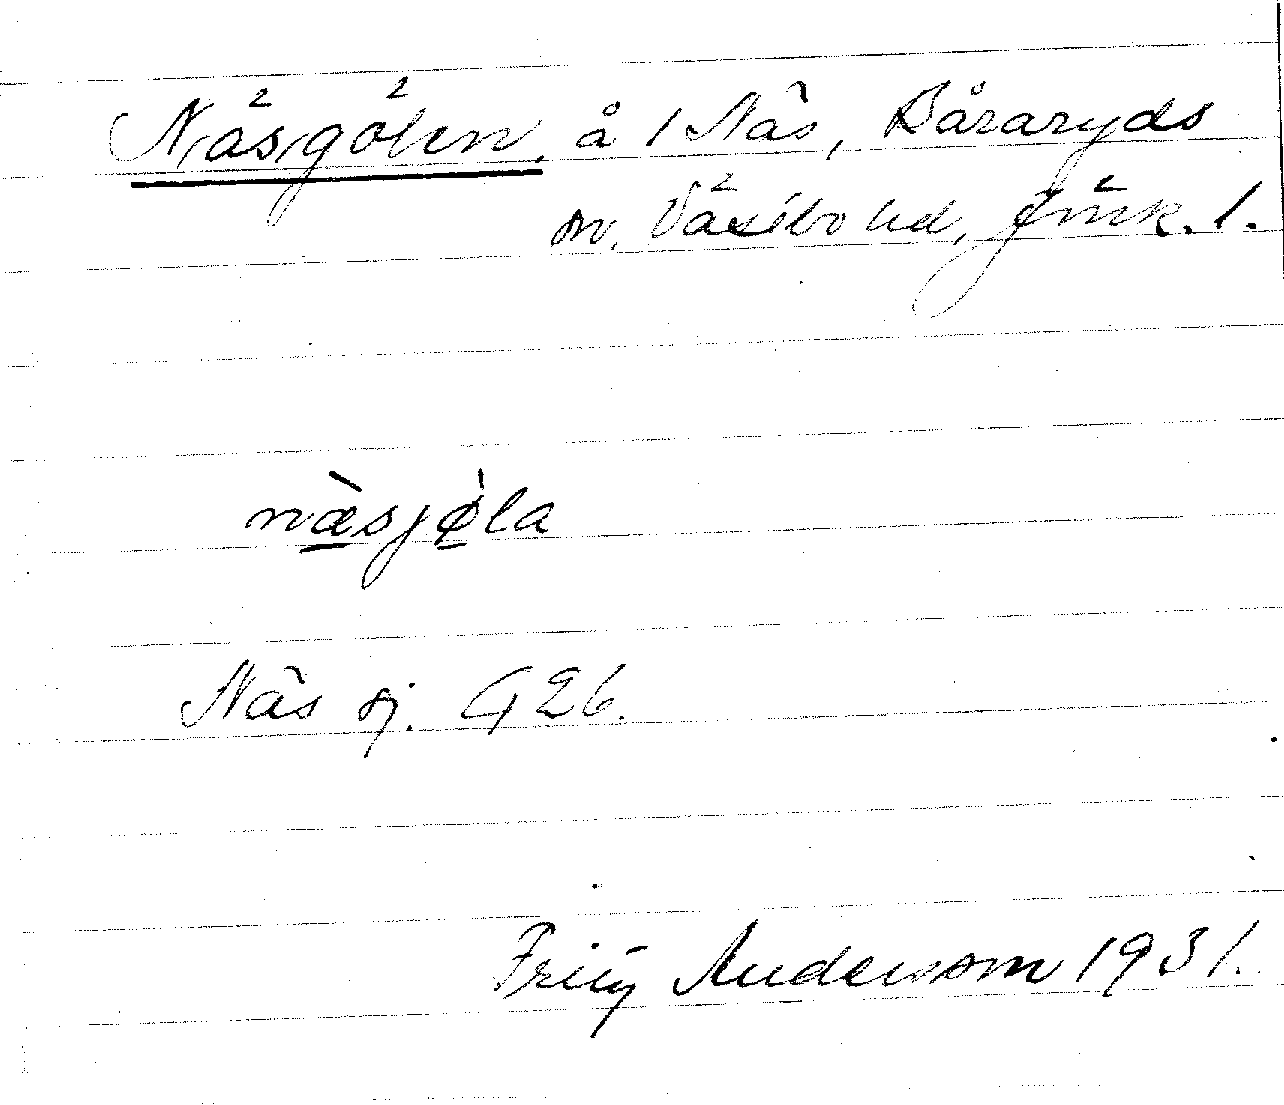 Näsgölen, å 1 Näs, Båraryds
sn, Västbo hd, Jönk. l.
næsjøla
Näs sj. G 26.
Fritz Andersson 1931.